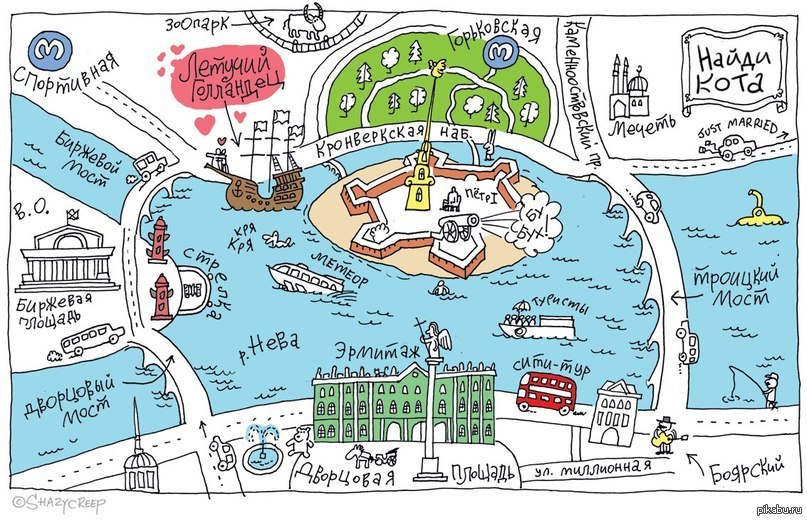 ЗООПАРК
ГОРЬКОВСКАЯ
СПОРТИВНАЯ
ЛЕТУЧИЙ
ГОЛЛАНДЕЦ
КАМЕННООСТРОВСКИЙ ПР.
НАЙДИ
КОТА
МЕЧЕТЬ
JUST MARRIED
КРОНВЕРКСКАЯ НАБ.
БИРЖЕВОЙ
МОСТ
В.О.
ПЁТР I
БУ
БУХ!
КРЯ
КРЯ
МЕТЕОР
СТРЕЛКА
БИРЖЕВАЯ
ПЛОЩАДЬ
ТРОИЦКИЙ
МОСТ
ТУРИСТЫ
р. НЕВА
ЭРМИТАЖ
СИТИ-ТУР
ДВОРЦОВЫЙ
МОСТ
ДВОРЦОВАЯ ПЛОЩАДЬ
УЛ. МИЛЛИОННАЯ
БОЯРСКИЙ
©SHAZYCREEP
pikabu.ru